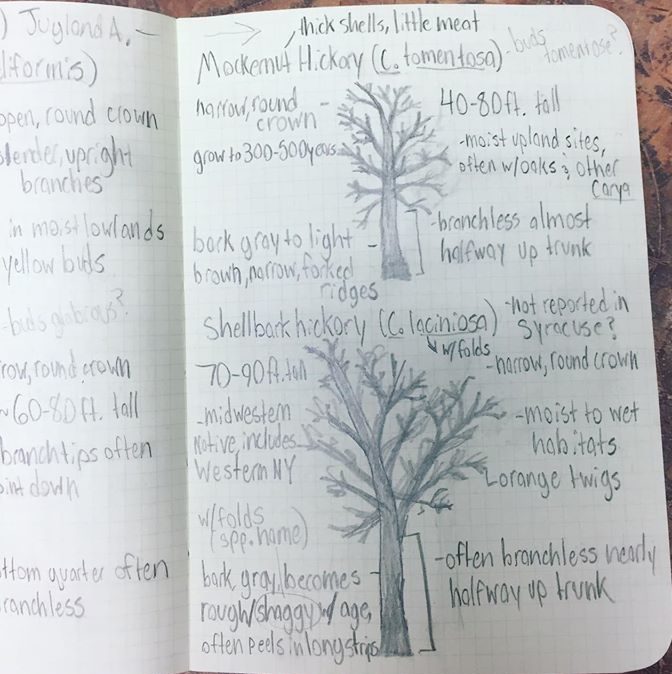 ) Jugland A. -
liformis)
open, round crown
slender, upright
branches
in moist lowlands
yellow buds
-buds glabrous?
row, round crown
~60-80ft. tall
branch tips often
oint down
ottom quarter often
ranchless
thick shells, little meat
Mockernut Hickory (C. tomentosa) -buds
tomentose?
narrow, round -
crown
grow to 300-500 years
40-80 ft. tall
-moist upland sites,
often w/oaks & other
Carya
-branchless almost
halfway up trunk
bark gray to light -
brown, narrow, forked
ridges
Shellbark hickory (C. laciniosa)
w/folds
-not reported in
Syracuse?
-narrow, round crown
70-90ft. tall
-midwestern
native, includes
Western NY
-moist to wet
habitats
orange twigs
w/folds
(spp. name)
-often branchless nearly
halfway up trunk
bark gray, becomes -
rough/shaggy w/ age,
often peels in long strips